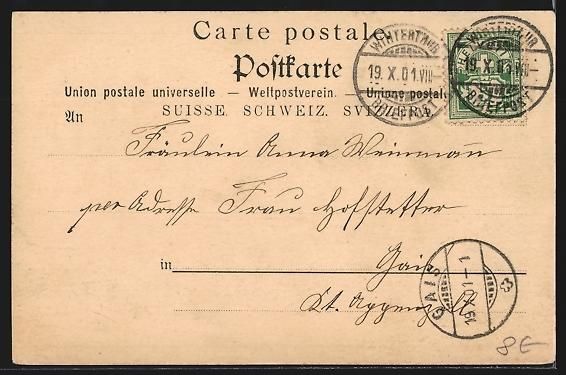 Carte postale.
Postkarte
Union postale universelle. — Weltpostverein. — Unione postale
SUISSE. SCHWEIZ. SVIZZERA.
An
WINTERTHUR
19. X. 01. VIII
BRIEFPOST
WINTERTHUR
19. X. 01. VIII
BRIEFPOST
Fräulein Anna Weinmann
per Adresse Frau Hofstetter
in Gais
Kt. Appenzell
GAIS
19. X. 01 – 1
8€